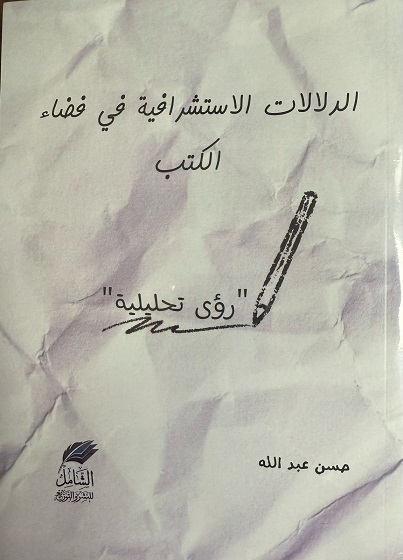 الدلالات الاستشرافية في فضاء
الكتب
"رؤى تحليلية"
حسن عبد الله
الشامل
للنشر والتوزيع